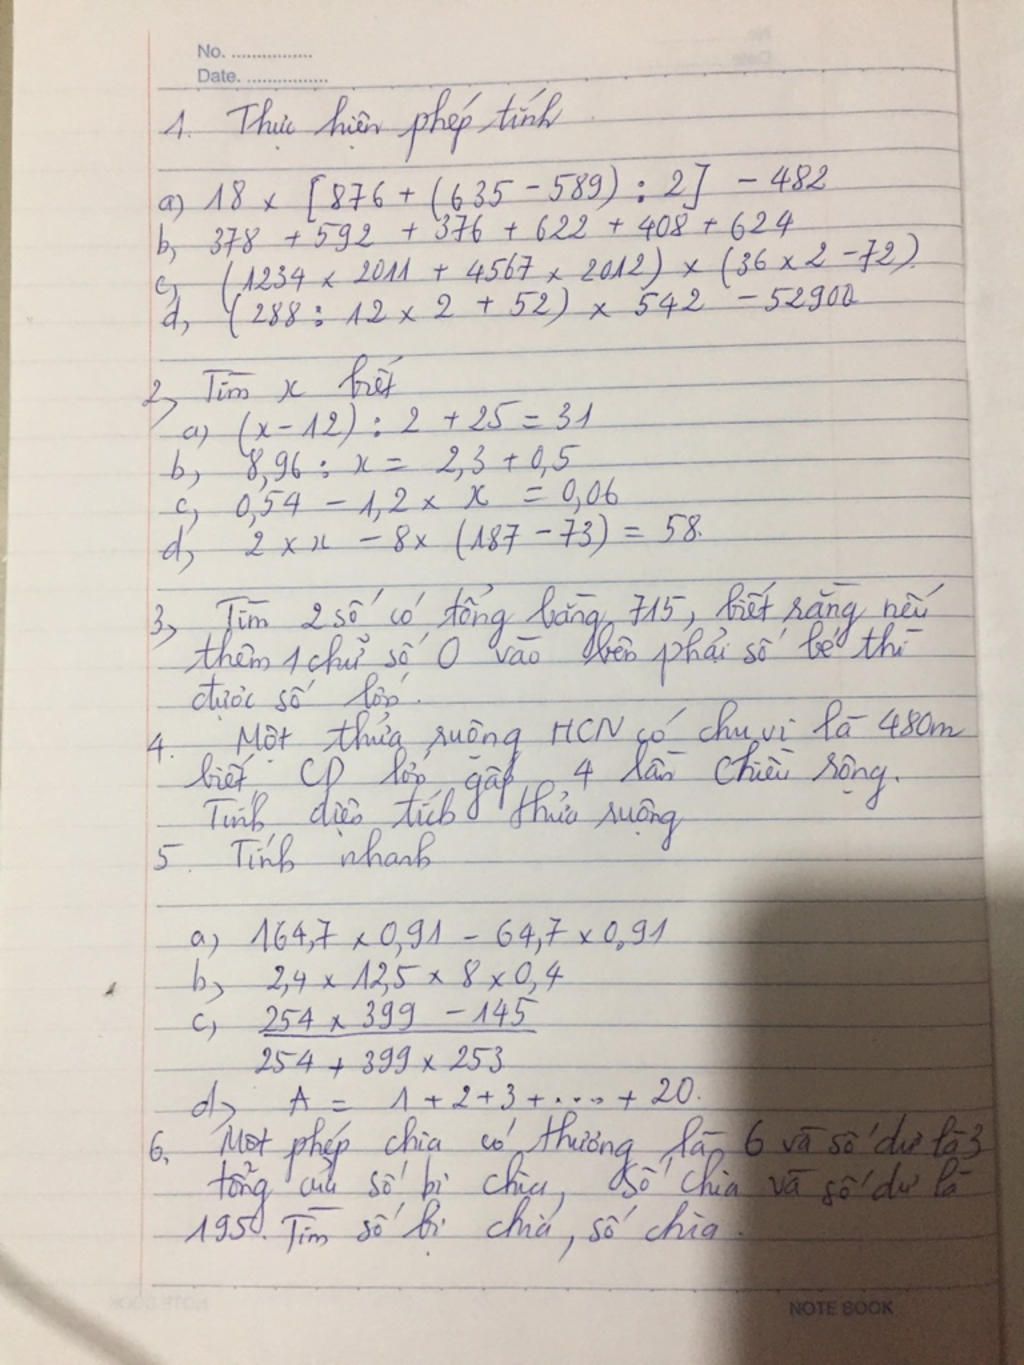 No. ................
Date. ................
1. Thực hiện phép tính
a) 18 x [876 + (635 - 589) : 2] - 482
b, 378 + 592 + 376 + 622 + 408 + 624
c, (1234 x 2011 + 4567 x 2012) x (36 x 2 - 72).
d, (288 : 12 x 2 + 52) x 542 - 52900
2, Tìm x biết
a) (x - 12) : 2 + 25 = 31
b, 8,96 : x = 2,3 + 0,5
c, 0,54 - 1,2 x x = 0,06
d, 2 x x - 8 x (187 - 73) = 58.
3, Tìm 2 số có tổng bằng 715, biết rằng nếu
thêm 1 chữ số 0 vào bên phải số bé thì
được số lớn.
4. Một thửa ruộng HCN có chu vi là 480m
biết CD lớn gấp 4 lần chiều rộng.
Tính diện tích thửa ruộng
5. Tính nhanh
a) 164,7 x 0,91 - 64,7 x 0,91
b, 2,4 x 12,5 x 8 x 0,4
c, 254 x 399 - 145
254 + 399 x 253
d, A = 1 + 2 + 3 + .... + 20.
6. Một phép chia có thương là 6 và số dư là 3
tổng của số bị chia, số chia và số dư là
195. Tìm số bị chia, số chia.
NOTE BOOK